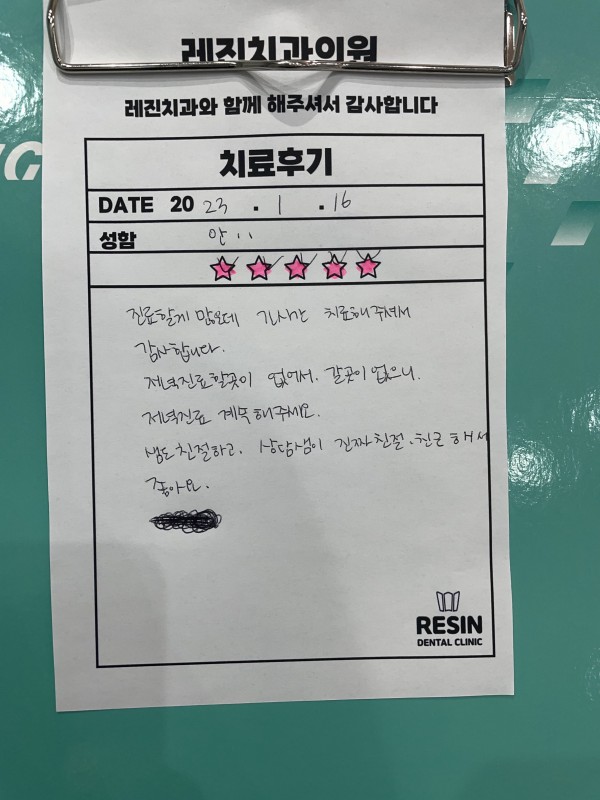 레진치과의원
레진치과와 함께 해주셔서 감사합니다
치료후기
DATE 20 23 . 1 . 16
성함 안..
진료할게 많은데 긴시간 치료해주셔서
감사합니다.
저녁진료할곳이 없어서. 갈곳이 없으니.
저녁진료 계속해주세요.
쌤도 친절하고. 상담쌤이 진짜 친절.친근 해서
좋아요.
RESIN
DENTAL CLINIC